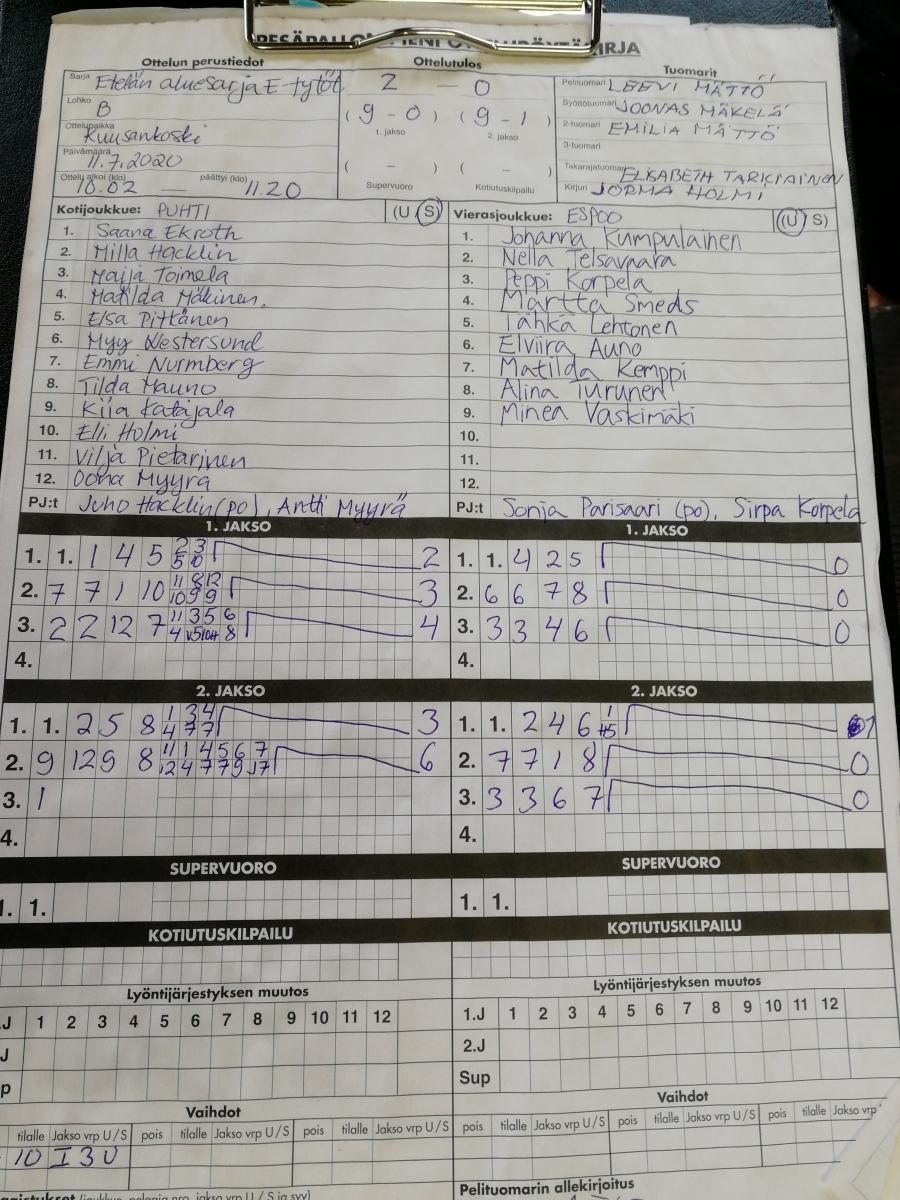 Ottelun perustiedot
Ottelutulos
Tuomarit
Sarja Etelän aluesarja E-tytöt
2 - 0
Pelituomari LEEVI MÄTTÖ
Lohko B
(9-0) (9-1)
Syöttötuomari JOONAS MÄKELÄ
1. jakso 2. jakso
2-tuomari EMILIA MÄTTÖ
Ottelupaikka Kuusankoski
3-tuomari
Päivämäärä 11.7.2020
( - ) ( - )
Takarajatuomari ELISABETH TARKIAINEN
Ottelu alkoi (klo) 10.02 — päättyi (klo) 11.20
Supervuoro Kotiutuskilpailu
Kirjuri JORMA HOLMI
Kotijoukkue: PUHTI (U S)
1. Saana Ekroth
2. Milla Hacklin
3. Maija Toimela
4. Matilda Mäkinen.
5. Elsa Pitkänen
6. Myy Westersund
7. Emmi Nurmberg
8. Tilda Mauno
9. Kiia Katajala
10. Elli Holmi
11. Vilja Pietarinen
12. Oona Myyrä
PJ:t Juho Hacklin (po), Antti Myyrä
Vierasjoukkue: ESPOO (U S)
1. Johanna Kumpulainen
2. Nella Telsavaara
3. Peppi Korpela
4. Martta Smeds
5. Tähkä Lehtonen
6. Elviira Auno
7. Matilda Kemppi
8. Alina Turunen
9. Minea Vaskimäki
10.
11.
12.
PJ:t Sonja Parisaari (po), Sirpa Korpela
1. JAKSO
1. 1. 1 4 5 2 3 2
5 10
2. 7 7 1 10 11 8 12 3
10 9 9
3. 2 2 12 7 11 3 5 6 4
4.
1. JAKSO
1. 1. 4 2 5 0
2. 6 6 7 8 0
3. 3 3 4 6 0
4.
2. JAKSO
1. 1. 2 5 8 1 3 4 3
4 7 7
2. 9 12 9 8 11 1 4 5 6 7 6
12 4 7 7 9
3. 1
4.
2. JAKSO
1. 1. 2 4 6 1 1
2. 7 7 1 8 0
3. 3 3 6 7 0
4.
SUPERVUORO
1. 1.
SUPERVUORO
1. 1.
KOTIUTUSKILPAILU
KOTIUTUSKILPAILU
Lyöntijärjestyksen muutos
.J 1 2 3 4 5 6 7 8 9 10 11 12
J
p
Lyöntijärjestyksen muutos
1.J 1 2 3 4 5 6 7 8 9 10 11 12
2.J
Sup
Vaihdot
tilalle Jakso vrp U/S pois tilalle Jakso vrp U/S pois tilalle Jakso vrp U/S
10 I 3 U
Vaihdot
pois tilalle Jakso vrp U/S pois tilalle Jakso vrp U/S pois tilalle Jakso vrp
Pelituomarin allekirjoitus